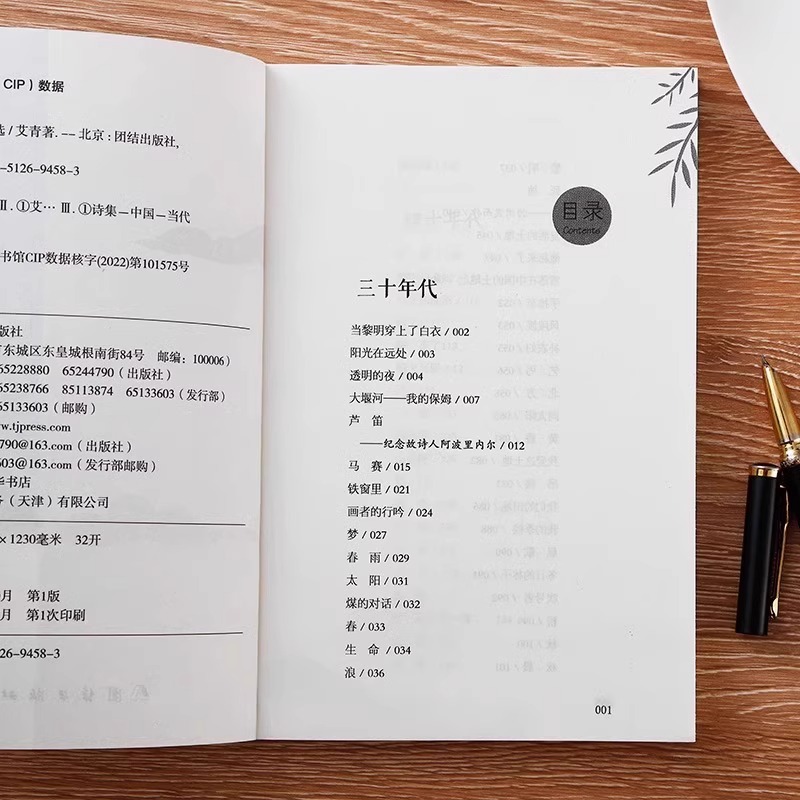 CIP）数据
选/艾青著.--北京：团结出版社，
-5126-9458-3
Ⅱ.①艾… Ⅲ.①诗集－中国－当代
书馆CIP数据核字(2022)第101575号
版社
东城区东皇城根南街84号 邮编：100006)
65228880 65244790（出版社）
65238766 85113874 65133603（发行部）
65133603（邮购）
www.tjpress.com
790@163.com（出版社）
603@163.com（发行部邮购）
华书店
（天津）有限公司
×1230毫米 32开
月 第1版
月 第1次印刷
126-9458-3
目录
Contents
三十年代
当黎明穿上了白衣 / 002
阳光在远处 / 003
透明的夜 / 004
大堰河——我的保姆 / 007
芦 笛
——纪念故诗人阿波里内尔 / 012
马 赛 / 015
铁窗里 / 021
画者的行吟 / 024
梦 / 027
春 雨 / 029
太 阳 / 031
煤的对话 / 032
春 / 033
生 命 / 034
浪 / 036
001